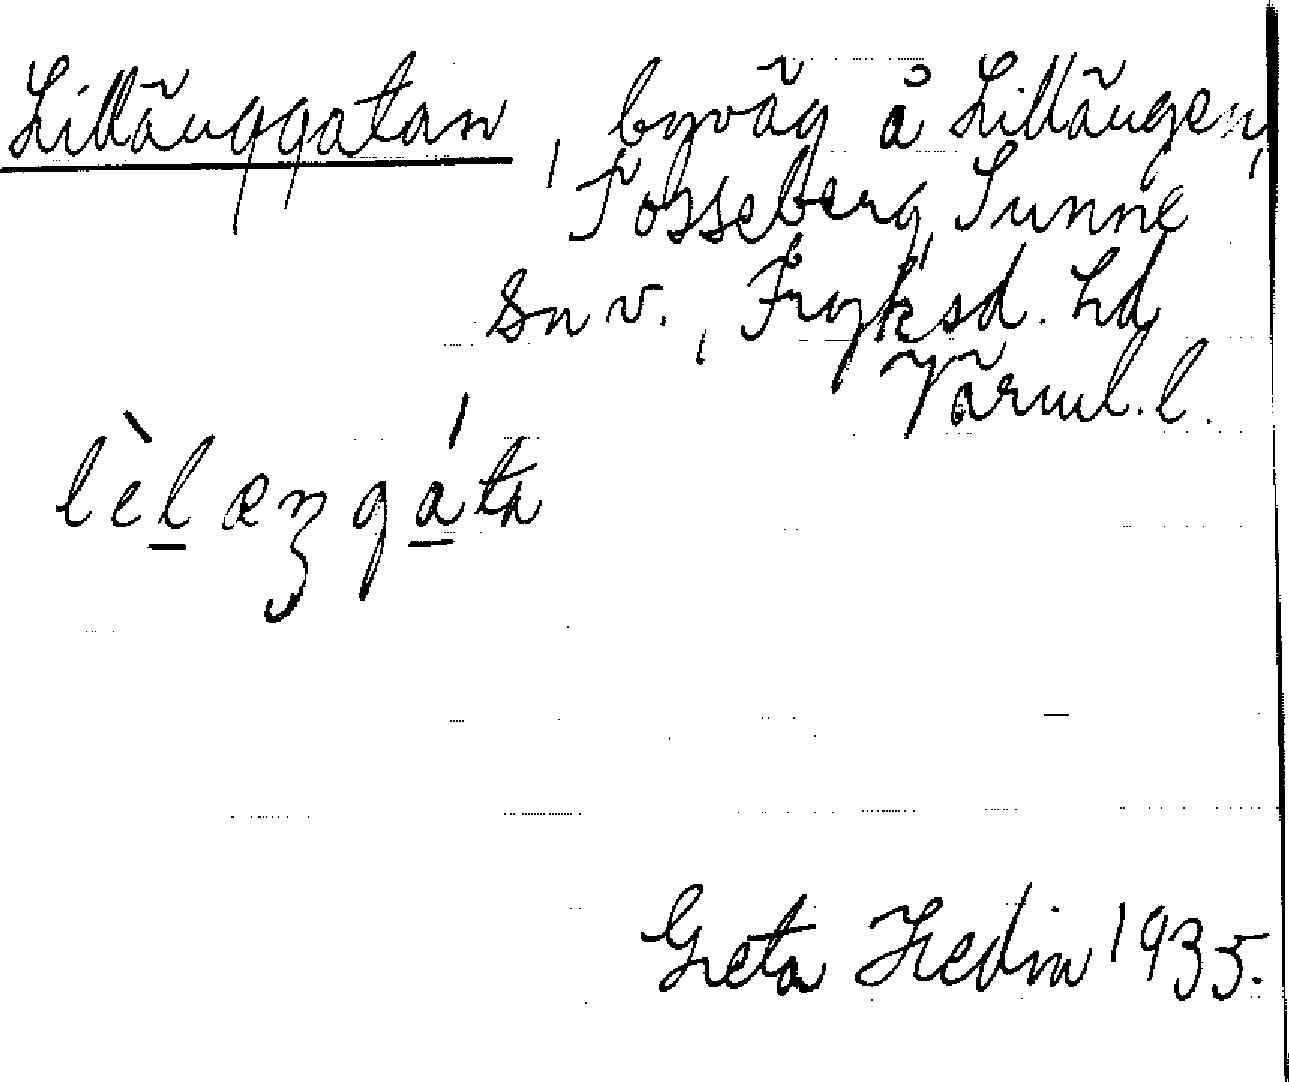 Lillänggatan, byväg å Lillängen,
Fosseberg, Sunne
sn v., Fryksd. hd
Värml. l.
lèlæŋgáta
Greta Hedin 1935.